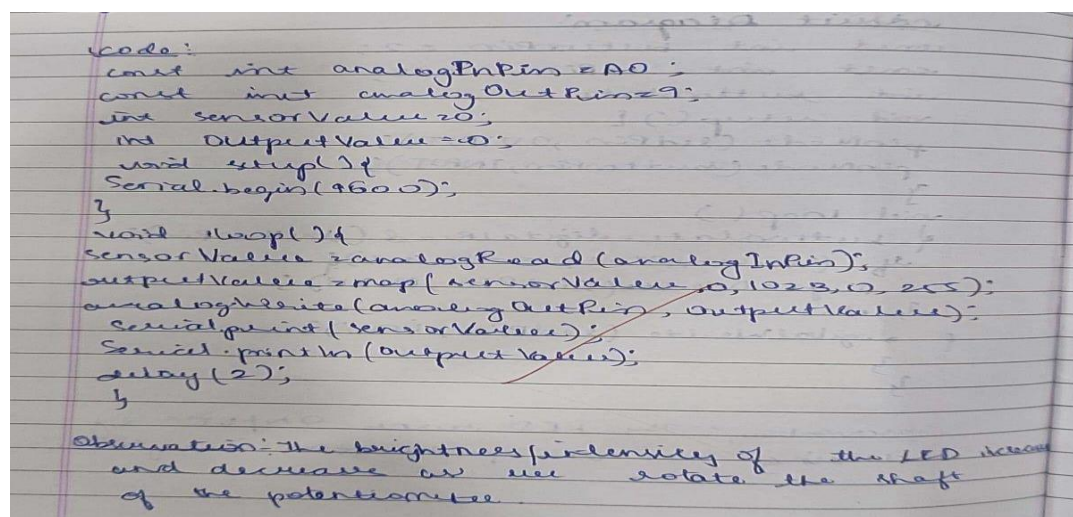 code:
const int analogInPin = A0;
const int analogOutPin=9;
int sensorValue=0;
int OutputValue=0;
void setup(){
Serial.begin(9600);
}
void loop(){
sensorValue=analogRead(analogInPin);
outputValue=map(sensorValue,0,1023,0,255);
analogWrite(analogOutPin, outputValue);
Serialprint(sensorValue);
Serial.println(outputValue);
delay(2);
}
Observation:- The brightness/intensity of the LED
and decrease as we rotate the shaft
of the potentiometer.